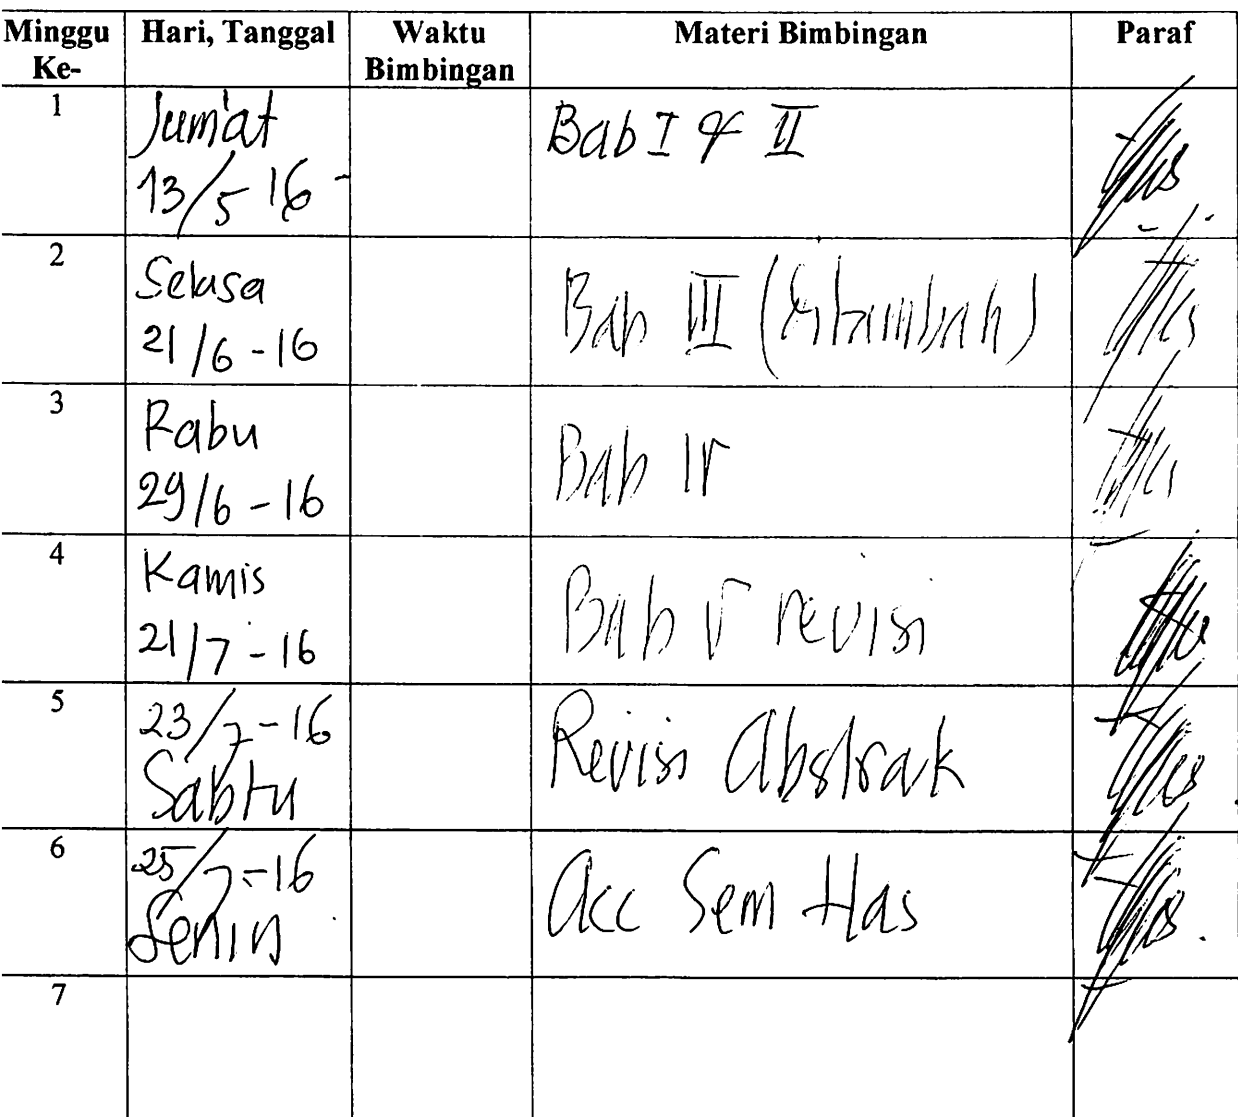 Minggu Ke- Hari, Tanggal Waktu Bimbingan Materi Bimbingan Paraf
1 Jum'at 13/5 16 - Bab I & II
2 Selasa 21/6 - 16 Bab III (ditambah)
3 Rabu 29/6 - 16 Bab IV
4 Kamis 21/7 - 16 Bab V revisi
5 23/7 - 16 Sabtu Revisi Abstrak
6 25/7 - 16 Senin Acc Sem Has
7